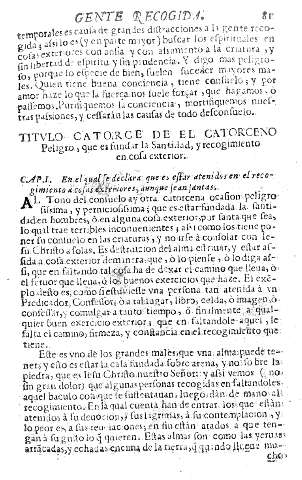 GENTE RECOGIDA. 81
temporales es causa de grandes distracciones a la gente reco-
gida; assi lo es (y en parte mayor) buscar los espirituales en
cosas exteriores con ansia y con asimiento a la criatura, y
sin libertad de espiritu y sin prudencia. Y digo mas peligro-
so, porque so especie de bien, suelen suceder mayores ma-
les. Quien tiene buena conciencia, tiene consuelo; y por
amor haze lo que la fuerça nos suele forçar, que hagamos, ò
passemos. Purifiquemos la conciencia, mortifiquemos nues-
tras passiones, y cessaràn las causas de todo desconsuelo.
TITVLO CATORCE DE EL CATORCENO
Peligro, que es fundar la Santidad, y recogimiento
en cosa exterior.
CAP. I. En el qual se declara que es estar atenidos en el reco-
gimiento a cosas exteriores, aunque sean santas.
AL Tono del consuelo ay otra catorcena ocasion peligro-
sissima, y perniciosissima; que es estar fundada la santi-
dad en hombres, ò en alguna cosa exterior, por santa que sea,
lo qual trae terribles inconvenientes; assi como los tiene po-
ner su consuelo en las criaturas, y no irse à consolar con Je-
su Christo a solas. Es destruicion del alma estrivar, y estar asi-
da a cosa exterior de manera: que, ò lo piense, ò lo diga as-
si, que en faltando tal cosa ha de dexar el camino que lleva, ò
el fervor que lleva, ò los buenos exercicios que haze. El exẽ-
plo desto es: como si estuviesse vna persona tan atenida à vn
Predicador, Confessor, ò a tal lugar, libro, celda, ò imagen, ò
confessar, y comulgar a tanto tiempo, ò finalmente a qual-
quier buen exercicio exterior; que en faltandole aquel, le
falta el camino, firmeza, y constancia en el recogimiento que
tiene.
Este es vno de los grandes males, que vna alma puede te-
ner; y esto es estar la casa fundada sobre arena, y no sobre la
piedra, que es Jesu Christo nuestro Señor: y assi vemos (no
sin gran dolor) que algunas personas recogidas en faltandoles
aquel baculo con que se sustentauan, luego dàn de mano al
recogimiento. En la qual cuenta hàn de entrar los que estàn
atenidos à su devocion, y sus lagrimas, à su contemplacion, y
lo peor es, a sus tentaciones, en fin estàn atados a que ten-
gan à su gusto lo q̃ quieren. Estas almas son como las yervas
arrãcadas, y echadas encima de la tierra, q̃ quando llegue mu-
cho